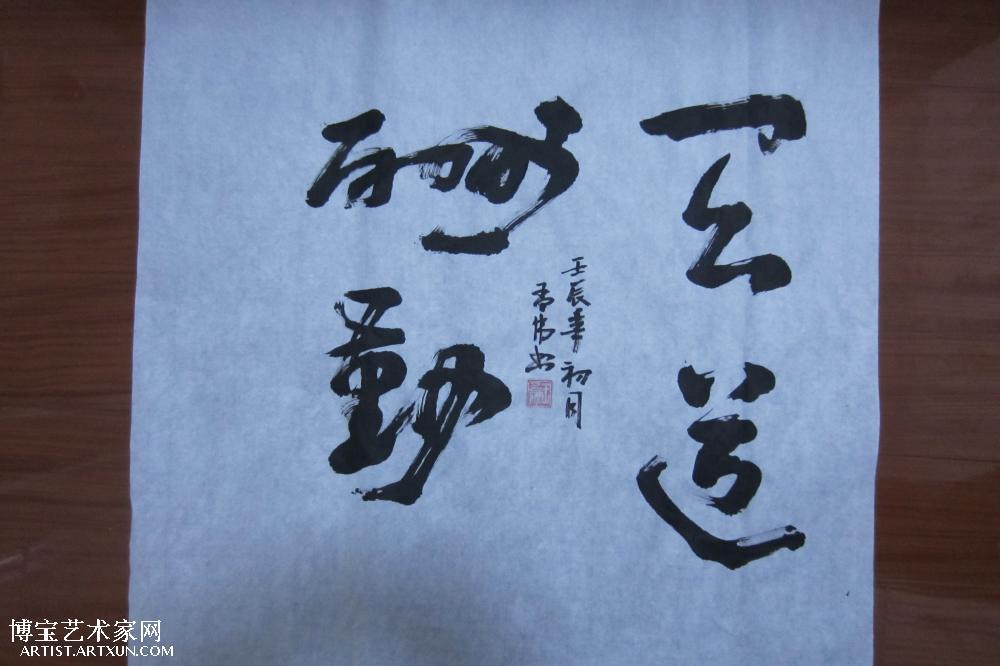 天道
酬勤
壬辰年初月
博宝艺术家网
ARTIST.ARTXUN.COM